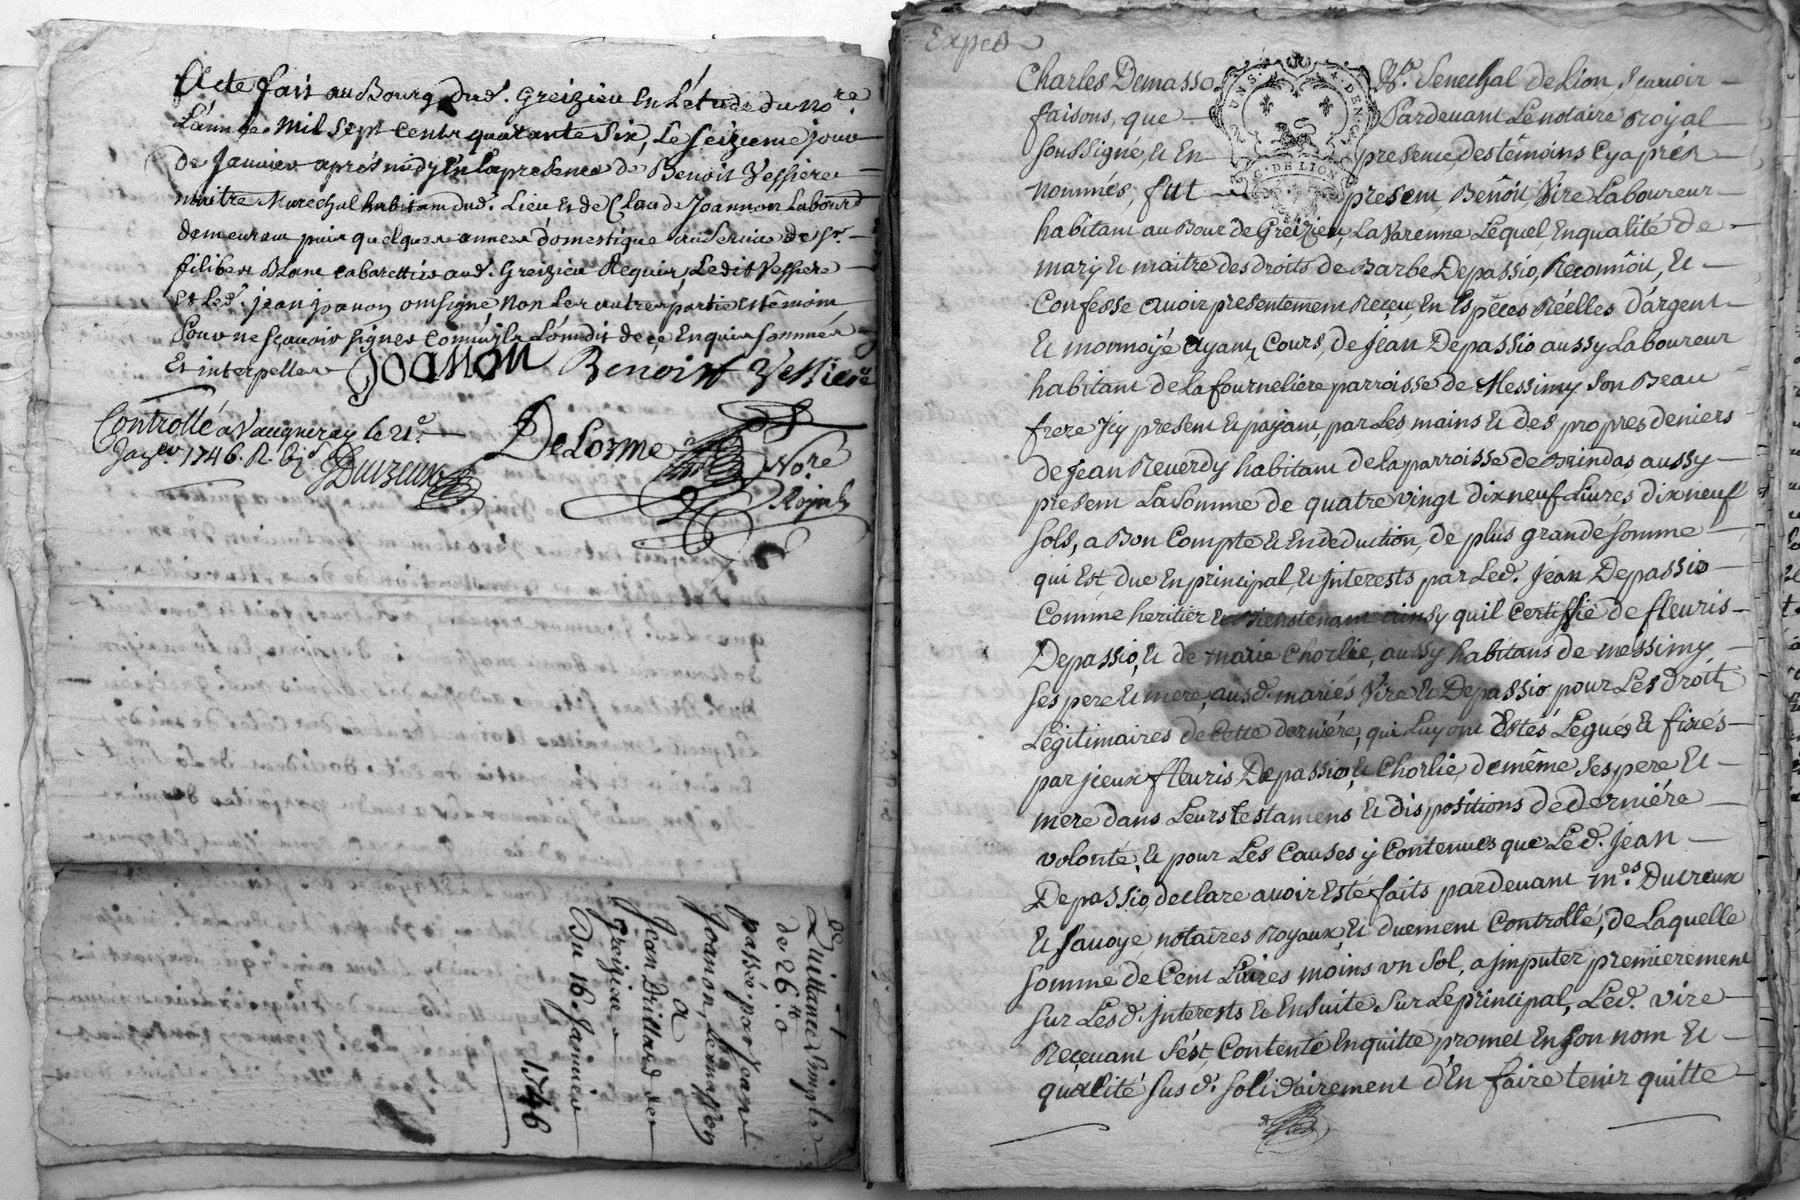 Acte fait au Bourg dud. Greizieu En L'étude du no.re
L'an Mil Sept Cents quarante Six, Le Seizieme jour
de Janvier après midy En la presence de Benoit Vessiere
maitre Marechal habitant dud. Lieu et de Claude Joannon Labour.d
demeurant puis quelques années domestique au Service de S.r
filibert Blanc Cabarettier aud. Greizieu Requis, Ledit Vessiere
et Led. jean joanon ont signé, Non Les autres parties et témoin
Pour ne Sçavoir signer Comm'ils L'ont dit de ce Enquis sommés
Et interpellés
Joanon Benoist Vessiere
Controllé à Vaugneray le 21.e
Janv.er 1746. R.
DeLorme
No.re
Royal
de
Quittance Simple
de 26.# 0
passée par Jean
Joanon, Lemasson
a
Jean Brillard de
greizieu
Du 16. Janvier
1746
Exped
Charles Demasso S.r Senechal de Lion, Scavoir
faisons, que Pardevant Le notaire Royal
soussigné, et En presence des témoins Cyaprés
G. DE LION
nommés, fut present, Benôit Vire Laboureur
habitant au Bour de Greizieu, La Varenne Lequel Enqualité de
mary et maitre des droits de Barbe Depassio, Reconnôit, et
Confesse avoir presentement Receu, En Espéces Réelles d'argent
et monnoyé ayant Cours, de jean Depassio aussy Laboureur
habitant de la fourneliere parroisse de Messimy Son Beau
frere Jcy present et payant, par Les mains et des propres deniers
de Jean Reverdy habitant de la parroisse de Brindas aussy
present La Somme de quatre vingt dix neuf Livres, dix neuf
sols, a Bon Compte et En deduction, de plus grande somme
qui Est due En principal, et jnterests par Led. jean Depassio
Comme heritier et Bienstenant ainsy quil Certiffie de fleuris
Depassio, et de marie Chorlie, aussy habitans de messimy
ses pere et mere, ausd. mariés Vire et Depassio pour Les droits
Légitimaires de Cette derniére, qui Luy ont Estés Legués et fixés
par jceux fleuris Depassio, et Chorlie, demême ses pere et
mere dans Leurs testamens et dispositions de derniére
volonté, et pour Les Causes ÿ Contenues que Led. jean
Depassio, declare avoir Esté faits pardevant m.es Ducreux
et Savoye, notaires Royaux, et duement Controllé, de Laquelle
somme de Cent Livres moins un Sol, a jmputer premierement
sur Lesd. jnterests et Ensuite Sur Le principal, Led. Vire
Recevant S'est Contenté Enquitte promet En son nom et
qualité Sus d. solidairement d'En faire tenir quitte